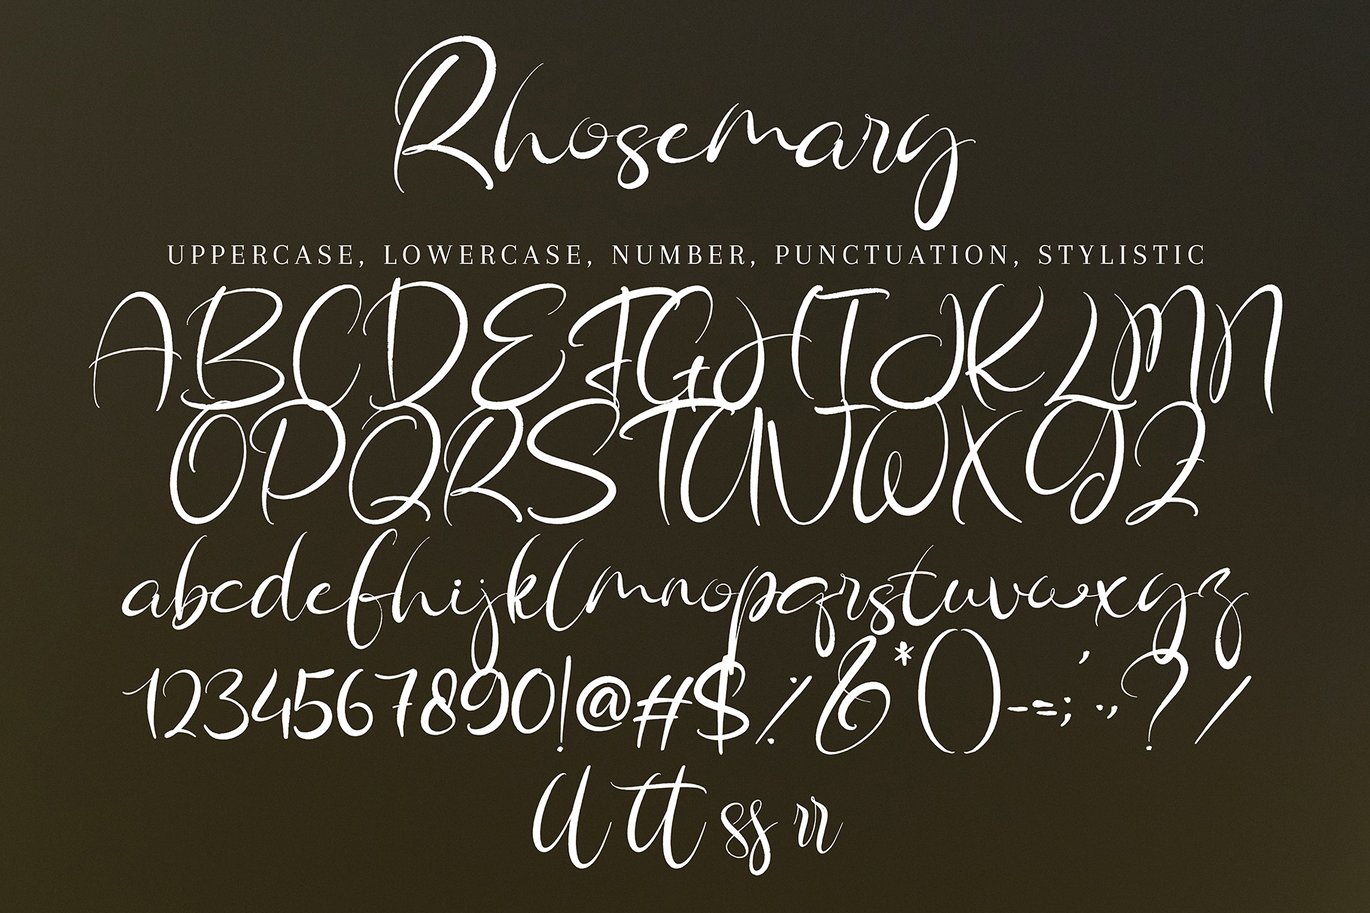 Rhosemary
UPPERCASE, LOWERCASE, NUMBER, PUNCTUATION, STYLISTIC
ABCDEFGHIJKLMN
OPQRSTUVWXYZ
abcdefghijklmnopqrstuvwxyz
1234567890!@#$%&*()-=;:.,'?/
ll tt ss rr